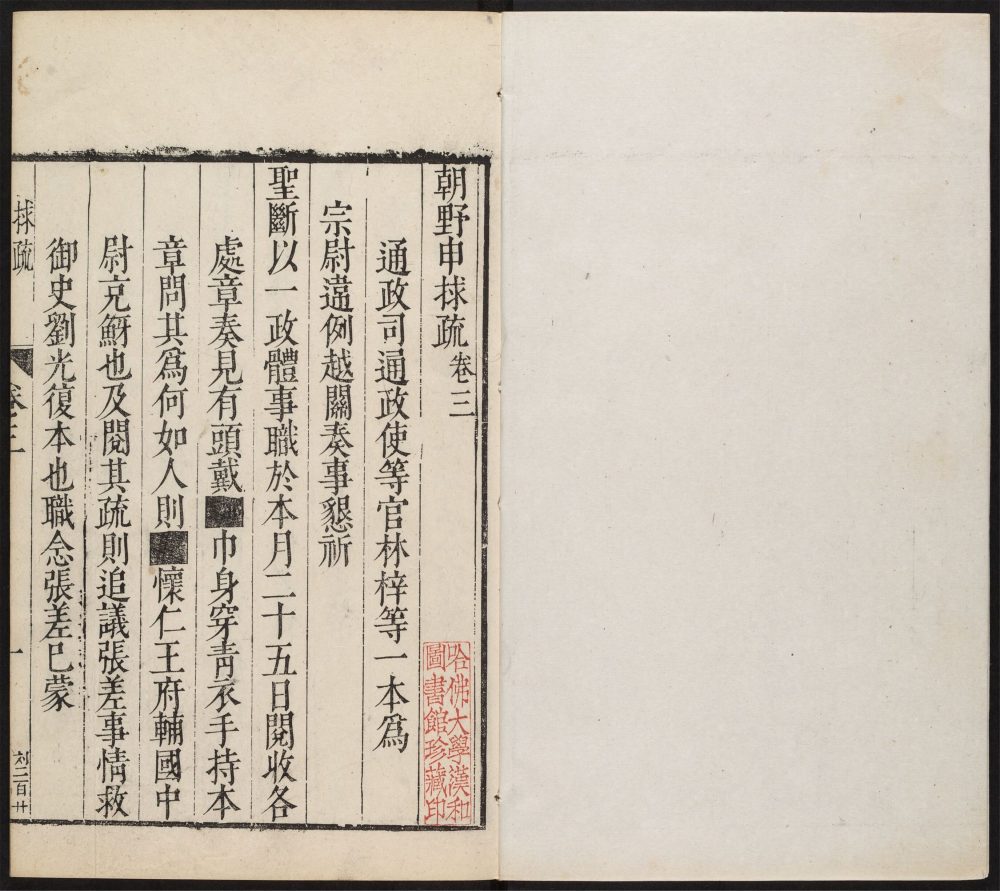 朝野申捄疏 卷三
哈佛大學漢和
圖書館珍藏印
通政司通政使等官林梓等一本爲
宗尉違例越關奏事懇祈
聖斷以一政體事職於本月二十五日閱收各
處章奏見有頭戴巾身穿青衣手持本
章問其爲何如人則懷仁王府輔國中
尉充也及閱其疏則追議張差事情救
御史劉光復本也職念張差已蒙
捄疏 卷三 一 刘二百廿